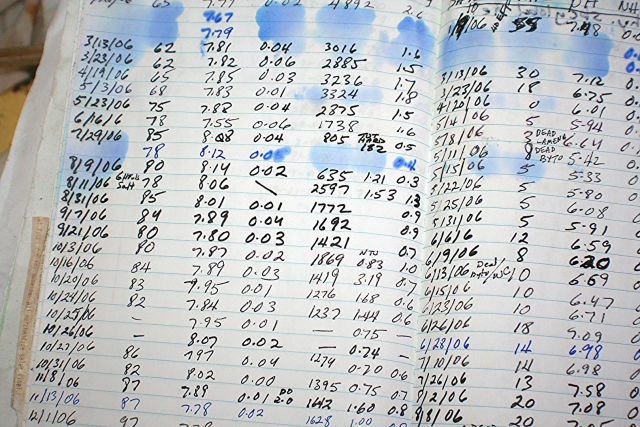 7.67
7.79
3/13/06 62 7.81 0.04 3016 1.6
3/23/06 62 7.82 0.06 2885 1.5
4/19/06 65 7.85 0.03 3236 1.7
5/3/06 68 7.83 0.01 3324 1.8
5/23/06 75 7.88 0.04 2875 1.5
6/16/06 78 7.55 0.06 1738
7/29/06 85 8.08 0.04 805 182 0.5
78 8.12 0.4
8/9/06 80 8.14 0.02 635 1.21 0.3
8/11/06 Salt 78 8.06 2597 1.53 1.3
8/31/06 85 8.01 0.01 1772 0.9
9/7/06 84 7.89 0.04 1692 0.9
9/21/06 80 7.80 0.03 1421 0.7
10/13/06 80 7.87 0.02 1869 NTU 0.83 1.0
10/16/06 84 7.89 0.03 1419 3.19 0.7
10/20/06 83 7.95 0.01 1276 168 0.6
10/24/06 82 7.84 0.03 1237 1.44 0.6
10/25/06 — 7.95 0.01 — 0.75 —
10/26/06 — 8.07 0.02 — 0.74 —
10/27/06 86 797 0.04 1274 0.70 0.6
10/31/06 82 8.02 0.00 1395 0.75 0.7
11/8/06 87 7.89 0.01 1642 1.60 0.8
11/13/06 87 7.78 0.02 1628 1.00
12/1/06
PH
7.48
3/13/06 30 7.12
3/23/06 18 6.75
4/20/06 0 6.01
5/4/06 5 5.94
5/8/06 3 DEAD 6.64
5/11/06 8 DEAD BYTO 5.42
5/15/06 5 5.33
5/22/06 5 5.80
5/25/06 5 6.08
5/31/06 5 5.91
6/6/6 12 6.59
6/9/06 8 6.20
6/13/06 10 6.69
6/15/06 10 6.47
6/23/06 10 6.71
6/26/06 18 7.09
6/28/06 14 6.98
7/10/06 14 6.98
7/26/06 13 7.58
8/2/06 20 7.08
8/8/06 20